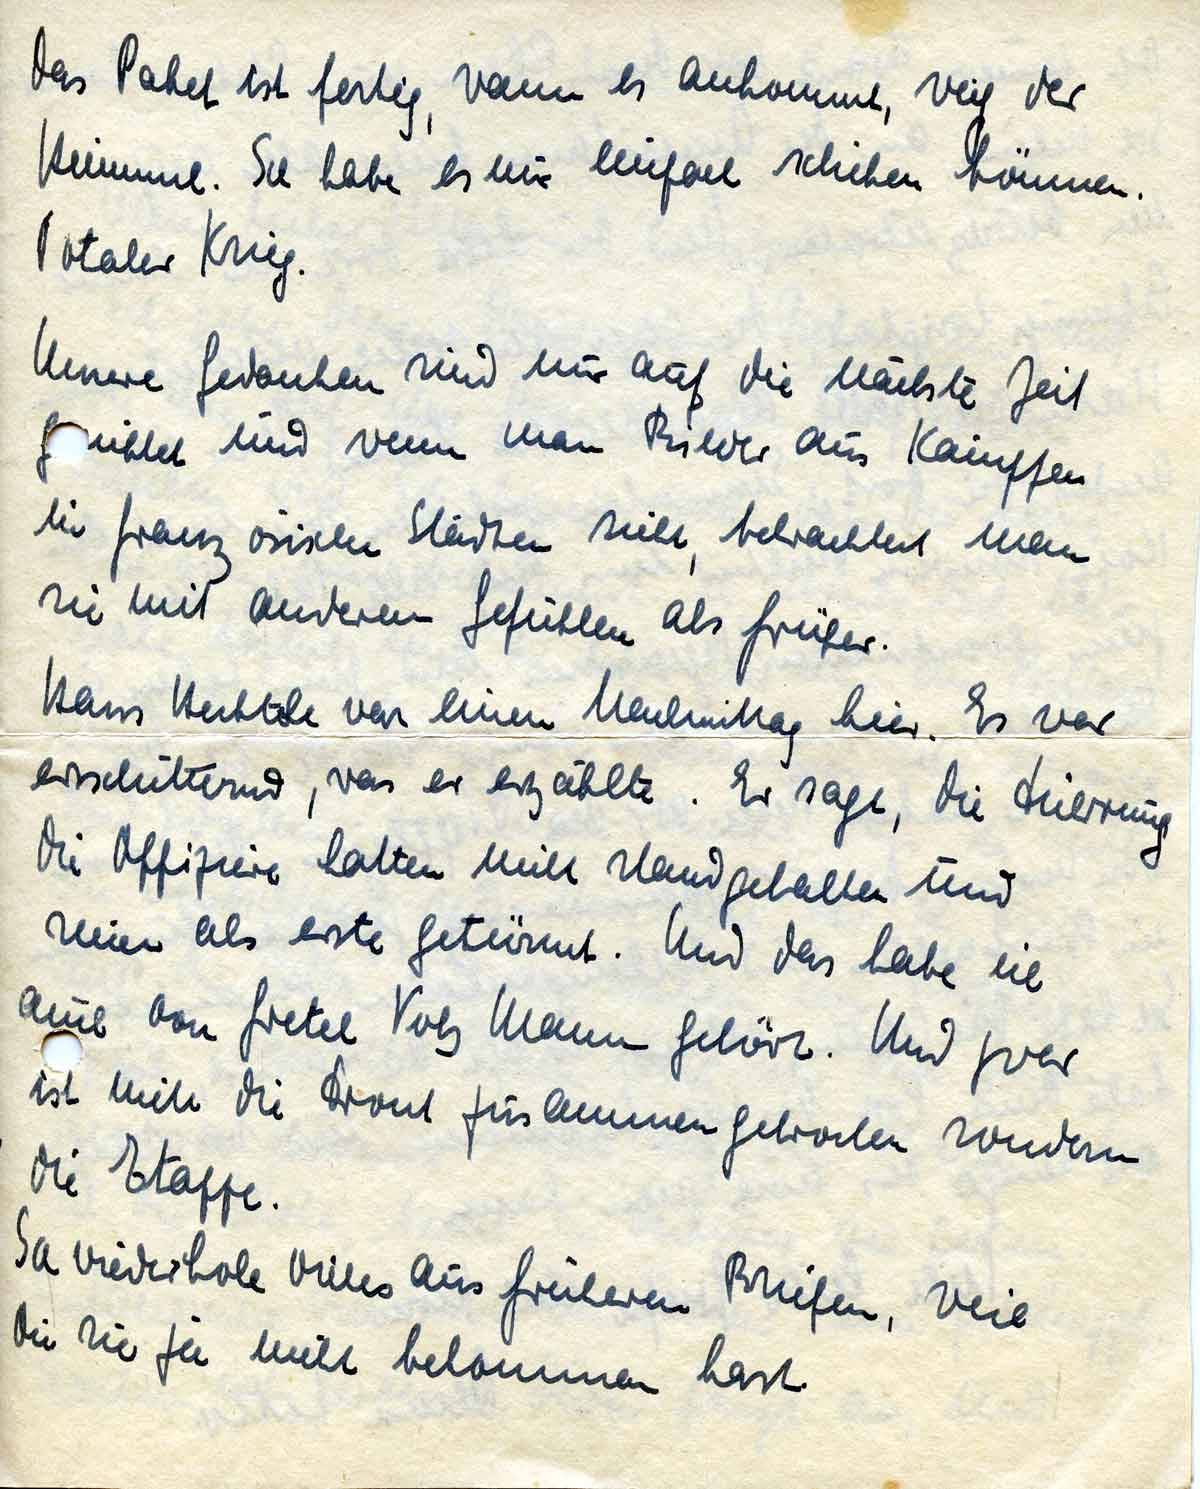 Das Paket ist fertig, wann es ankommt, weiß der
Himmel. Ich habe es nur einfach schicken können.
Totaler Krieg.
Unsere Gedanken sind nur auf die nächste Zeit
gerichtet und wenn man Bilder aus Kämpfen
in französischen Städten sieht, betrachtet man
sie mit anderen Gefühlen als früher.
Hans war einen Nachmittag hier. Es war
erschütternd, was er erzählte. Er sagt, die Führung
die Offiziere hätten nicht standgehalten und
seien als erste getürmt. Und das habe ich
auch von Gretel Volz Mann gehört. Und zwar
ist nicht die Front zusammengebrochen sondern
die Etappe.
Ich wiederhole vieles aus früheren Briefen, weil
Du sie ja nicht bekommen hast.